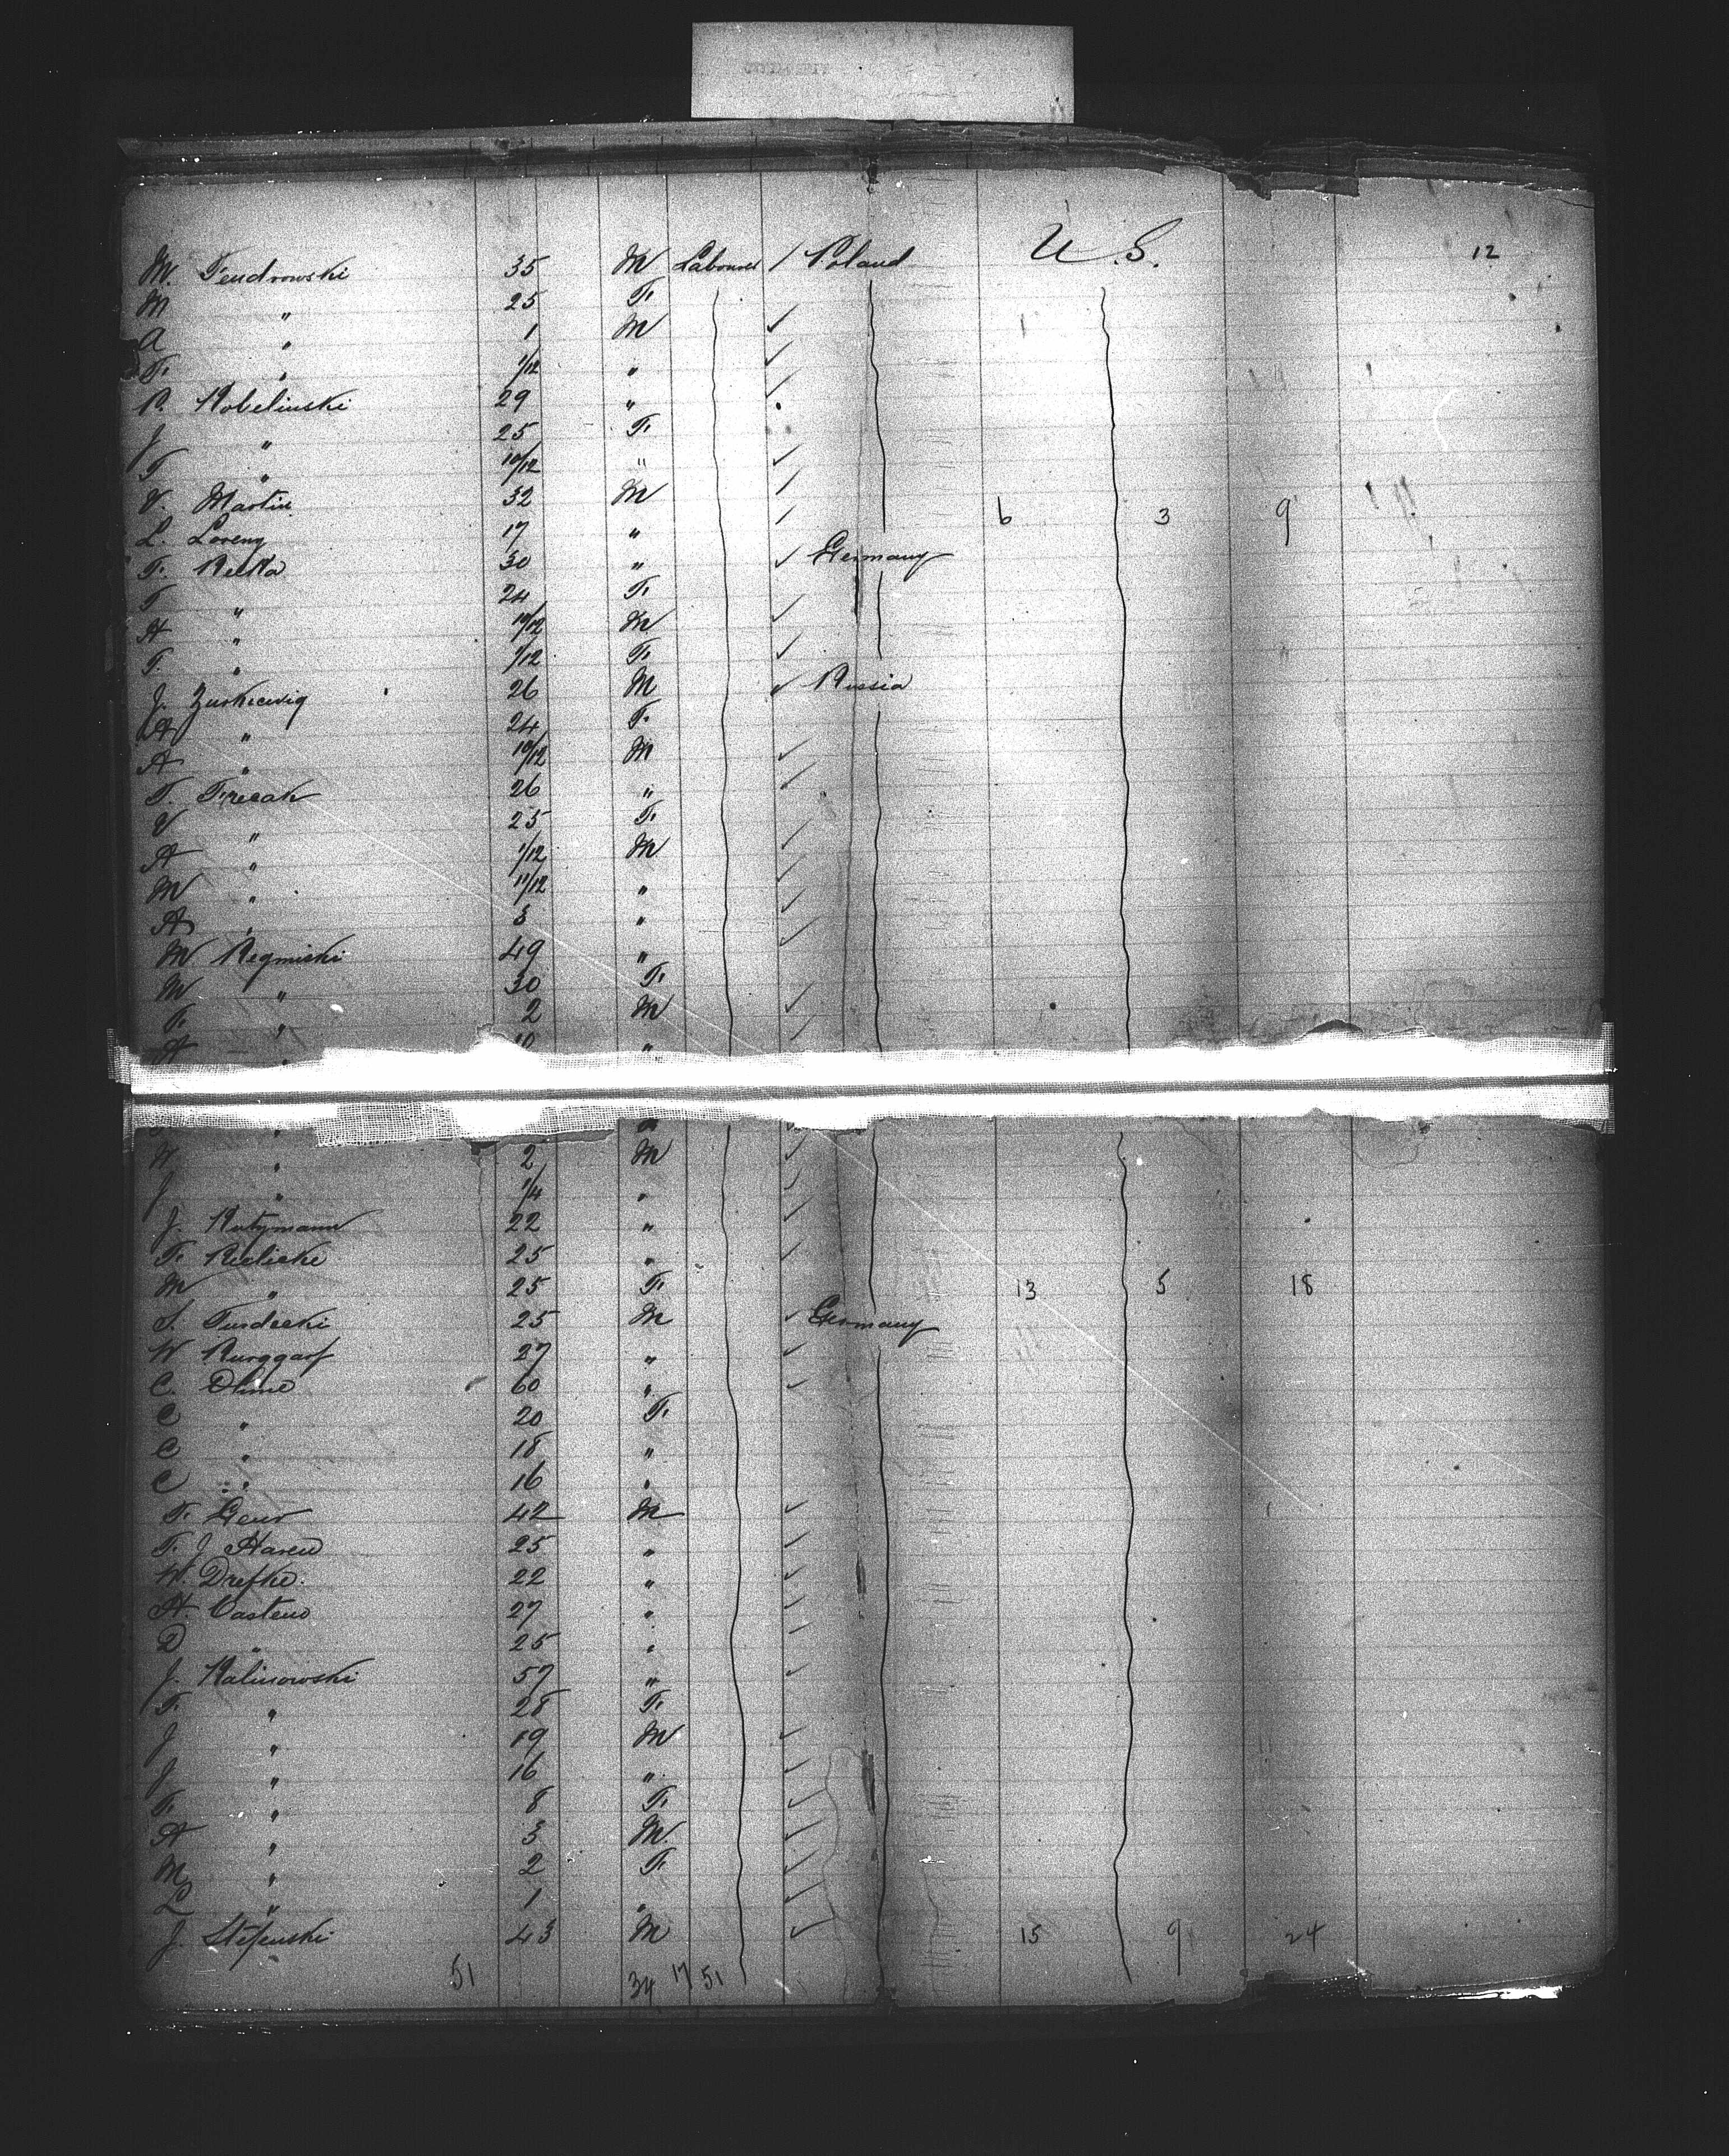 M. Fendrowski 35 M Labourer / Poland U.S. 12
M " 25 F.
A " 1 M ✓
F. " 1/12 " ✓
R. Kobelinski 29 "
J " 25 F.
T " 10/12 " ✓
V. Martin 32 M
L. Loreng 17 " 6 3 9
F. Relka 30 " ✓ Germany
T " 24 F.
A " 10/12 M ✓
F. " 1/12 F. ✓
J. Zuskiewig 26 M ✓ Russia
A " 24 F.
A " 10/12 M ✓
T. Frecak 26 " ✓
V " 25 F.
A " 1/12 M ✓
M " 11/12 " ✓
A " 3 " ✓
M Regmiski 49 " ✓
M " 30 F.
F. " 2 M ✓
A " 10 " ✓
" 2 M ✓
J " 1/4 " ✓
J. Rutzmann 22 " ✓
F. Rielicke 25 " ✓
M " 25 F. 13 5 18
S. Turdecki 25 M ✓ Germany
W Burggarf 27 " ✓
C. Dhme 60 " ✓
C " 20 F.
C " 18 "
C " 16 "
F. Geur 42 M ✓
F. J Haren 25 " ✓
W. Drefke. 22 " ✓
H. Casteno 27 " ✓
D " 25 " ✓
J. Kalinowski 57 " ✓
F. " 28 F.
J " 19 M ✓
J " 16 " ✓
F. " 8 F. ✓
A " 3 M. ✓
M " 2 F. ✓
L " 1 " ✓
J. Stefenski 43 M ✓ 15 9 24
51 34 17 51